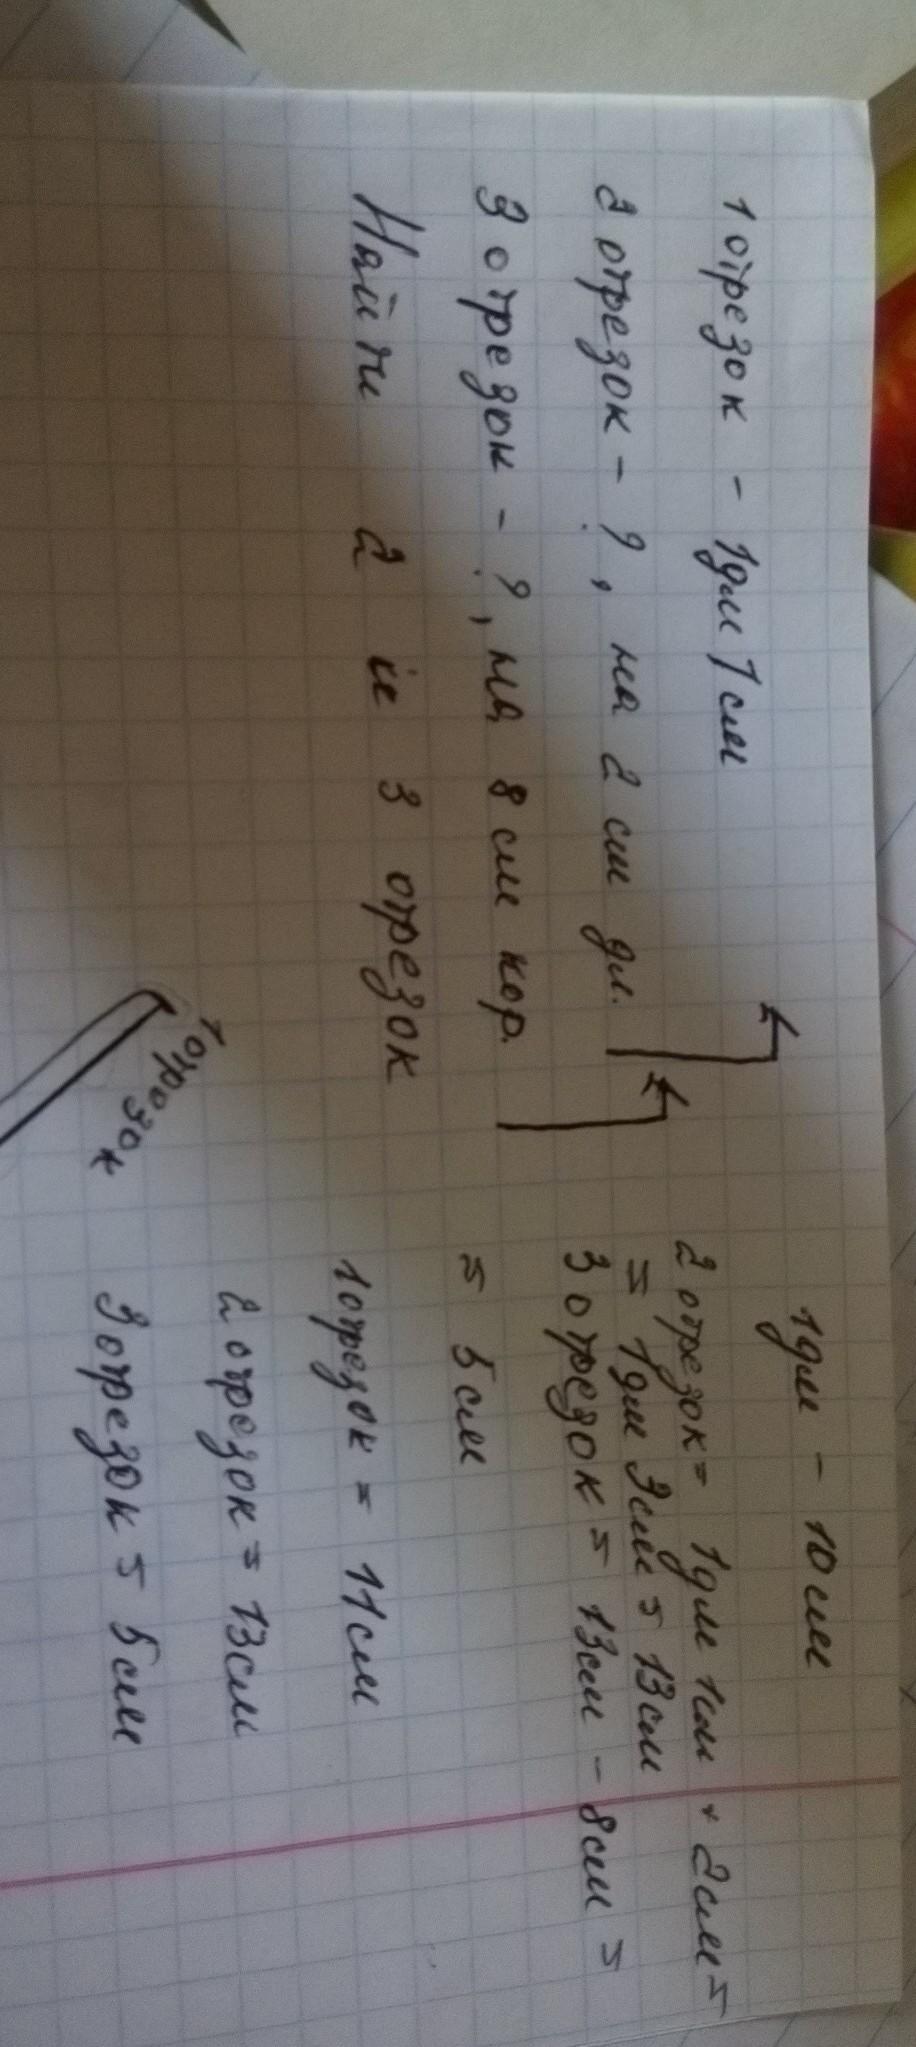 1 отрезок - 1дм 1см
2 отрезок - ?, на 2 см дл.
3 отрезок - ?, на 8 см кор.
Найти 2 и 3 отрезок
1 отрезок
1дм - 10см
2 отрезок = 1дм 1см + 2см =
= 1дм 3см = 13см
3 отрезок = 13см - 8см =
= 5см
1 отрезок = 11см
2 отрезок = 13см
3 отрезок = 5см